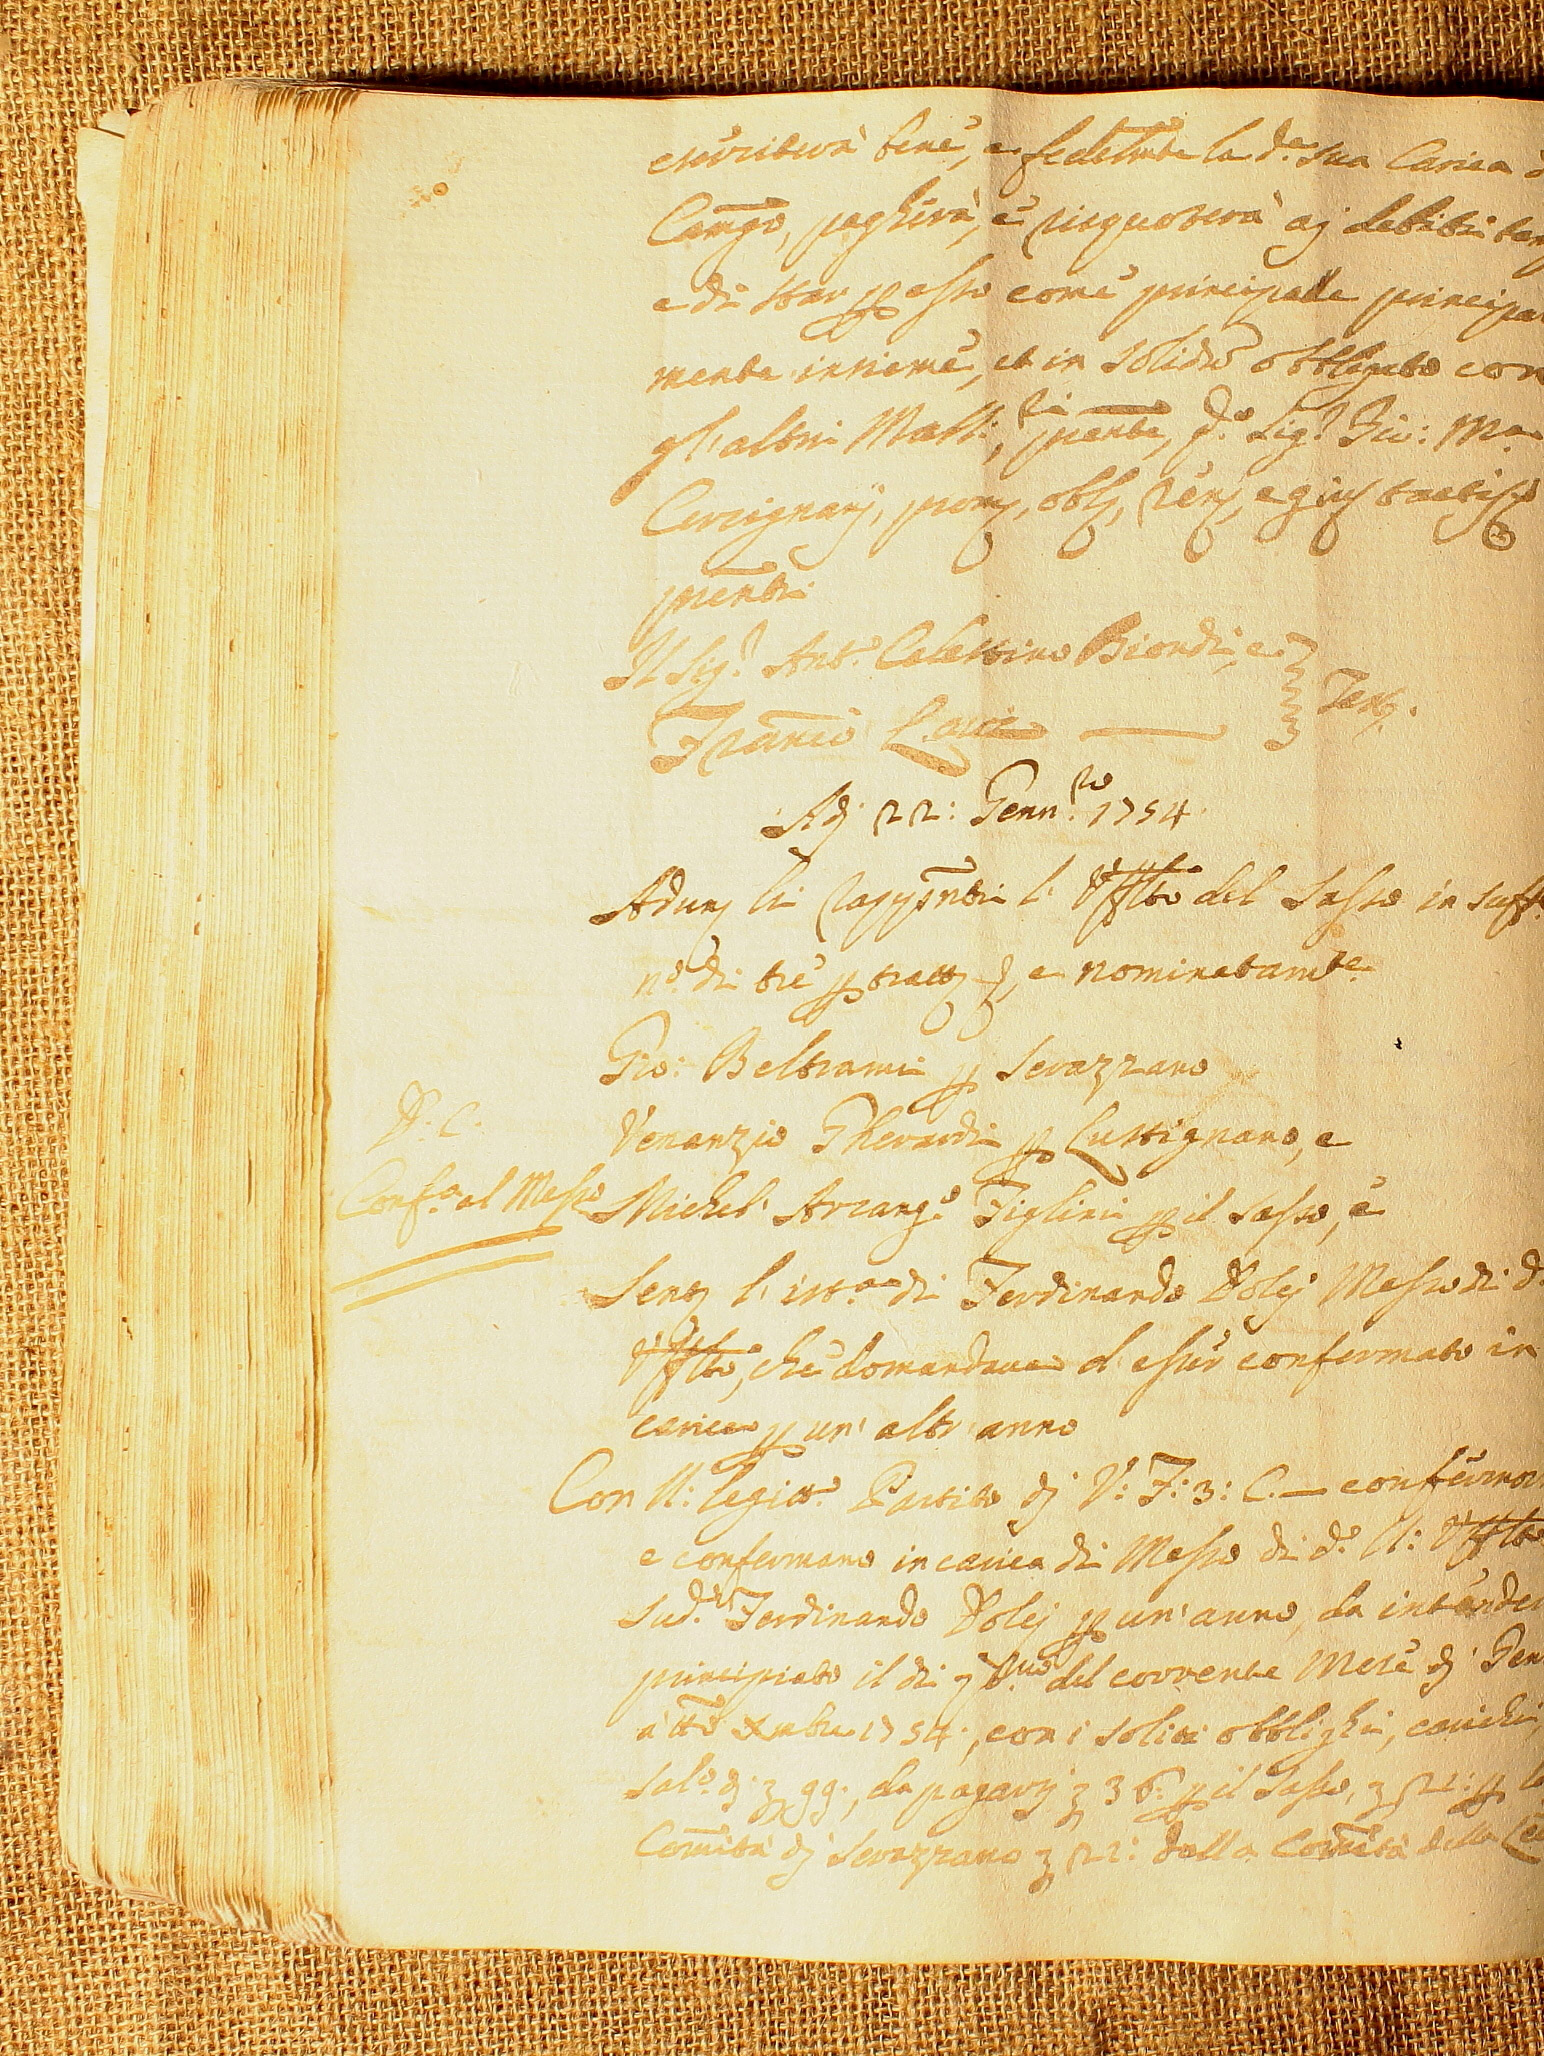 eserciterà bene, e fedelmte la da. sua Carica
Camgo, pagherà, e risquoterà aj debiti
e di star p esso come principale principal
mente insieme, et in solidu obbligato con
gl'altri Mall:, pnte, do. Sigr. Gio: Ma
Cercignanj, prom, obbl, ren, e giu
pnti
Il Sigr. Anto. Celestino Biondi, e
Franco Test.
Adj 22: Gennro. 1754
Adun li Rapppnti l' Uffto del Sasso in suff.
no. di tre p tratt e nominatamte.
Gio: Beltrami p Serazzano
Venanzio Gherardi p Lustignano, e
V. C.
Confa. al Messo
Michel' Arcango. Figlini p il Sasso, e
Sent l' istza di Ferdinando Volej Messo di d.
Uffto, che domandava d esser confermato in
carica p un' altr' anno
Con U: legitto. Partito dj V: F: 3: C. — confermor
e confermano in carica di Messo di do. U: Uffto
sudo. Ferdinando Volej p un' anno, da intender
principiato il di pmo del corrente Mese dj Gen
a tto Xmbre 1754, con i soliti obblighi, carichi,
salo. dj 99:, da pagarsj 36: p il Sasso, 21: p
Comità dj Serazzano 21: dalla Comità della